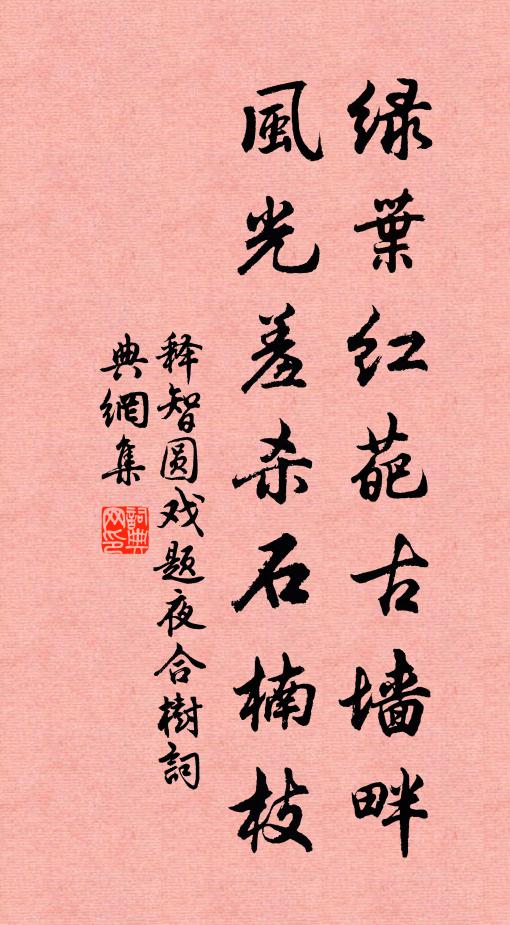 绿葉红葩古墙畔
風光羞杀石楠枝
释智圆戏题夜合樹詞
典網集
詞典网印